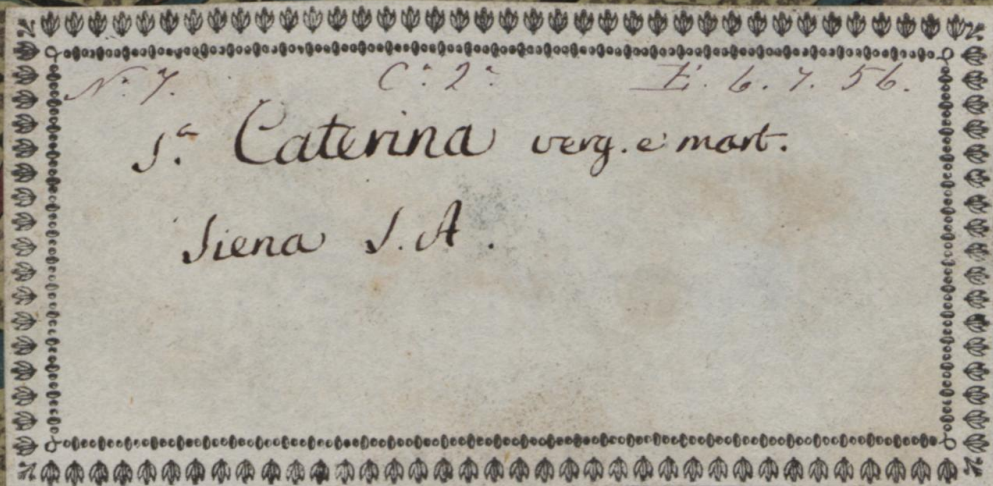 N.° 7. C.ª 2.ª E. 6. 7. 56.
S.ª Caterina verg. e mart.
Siena S. A.